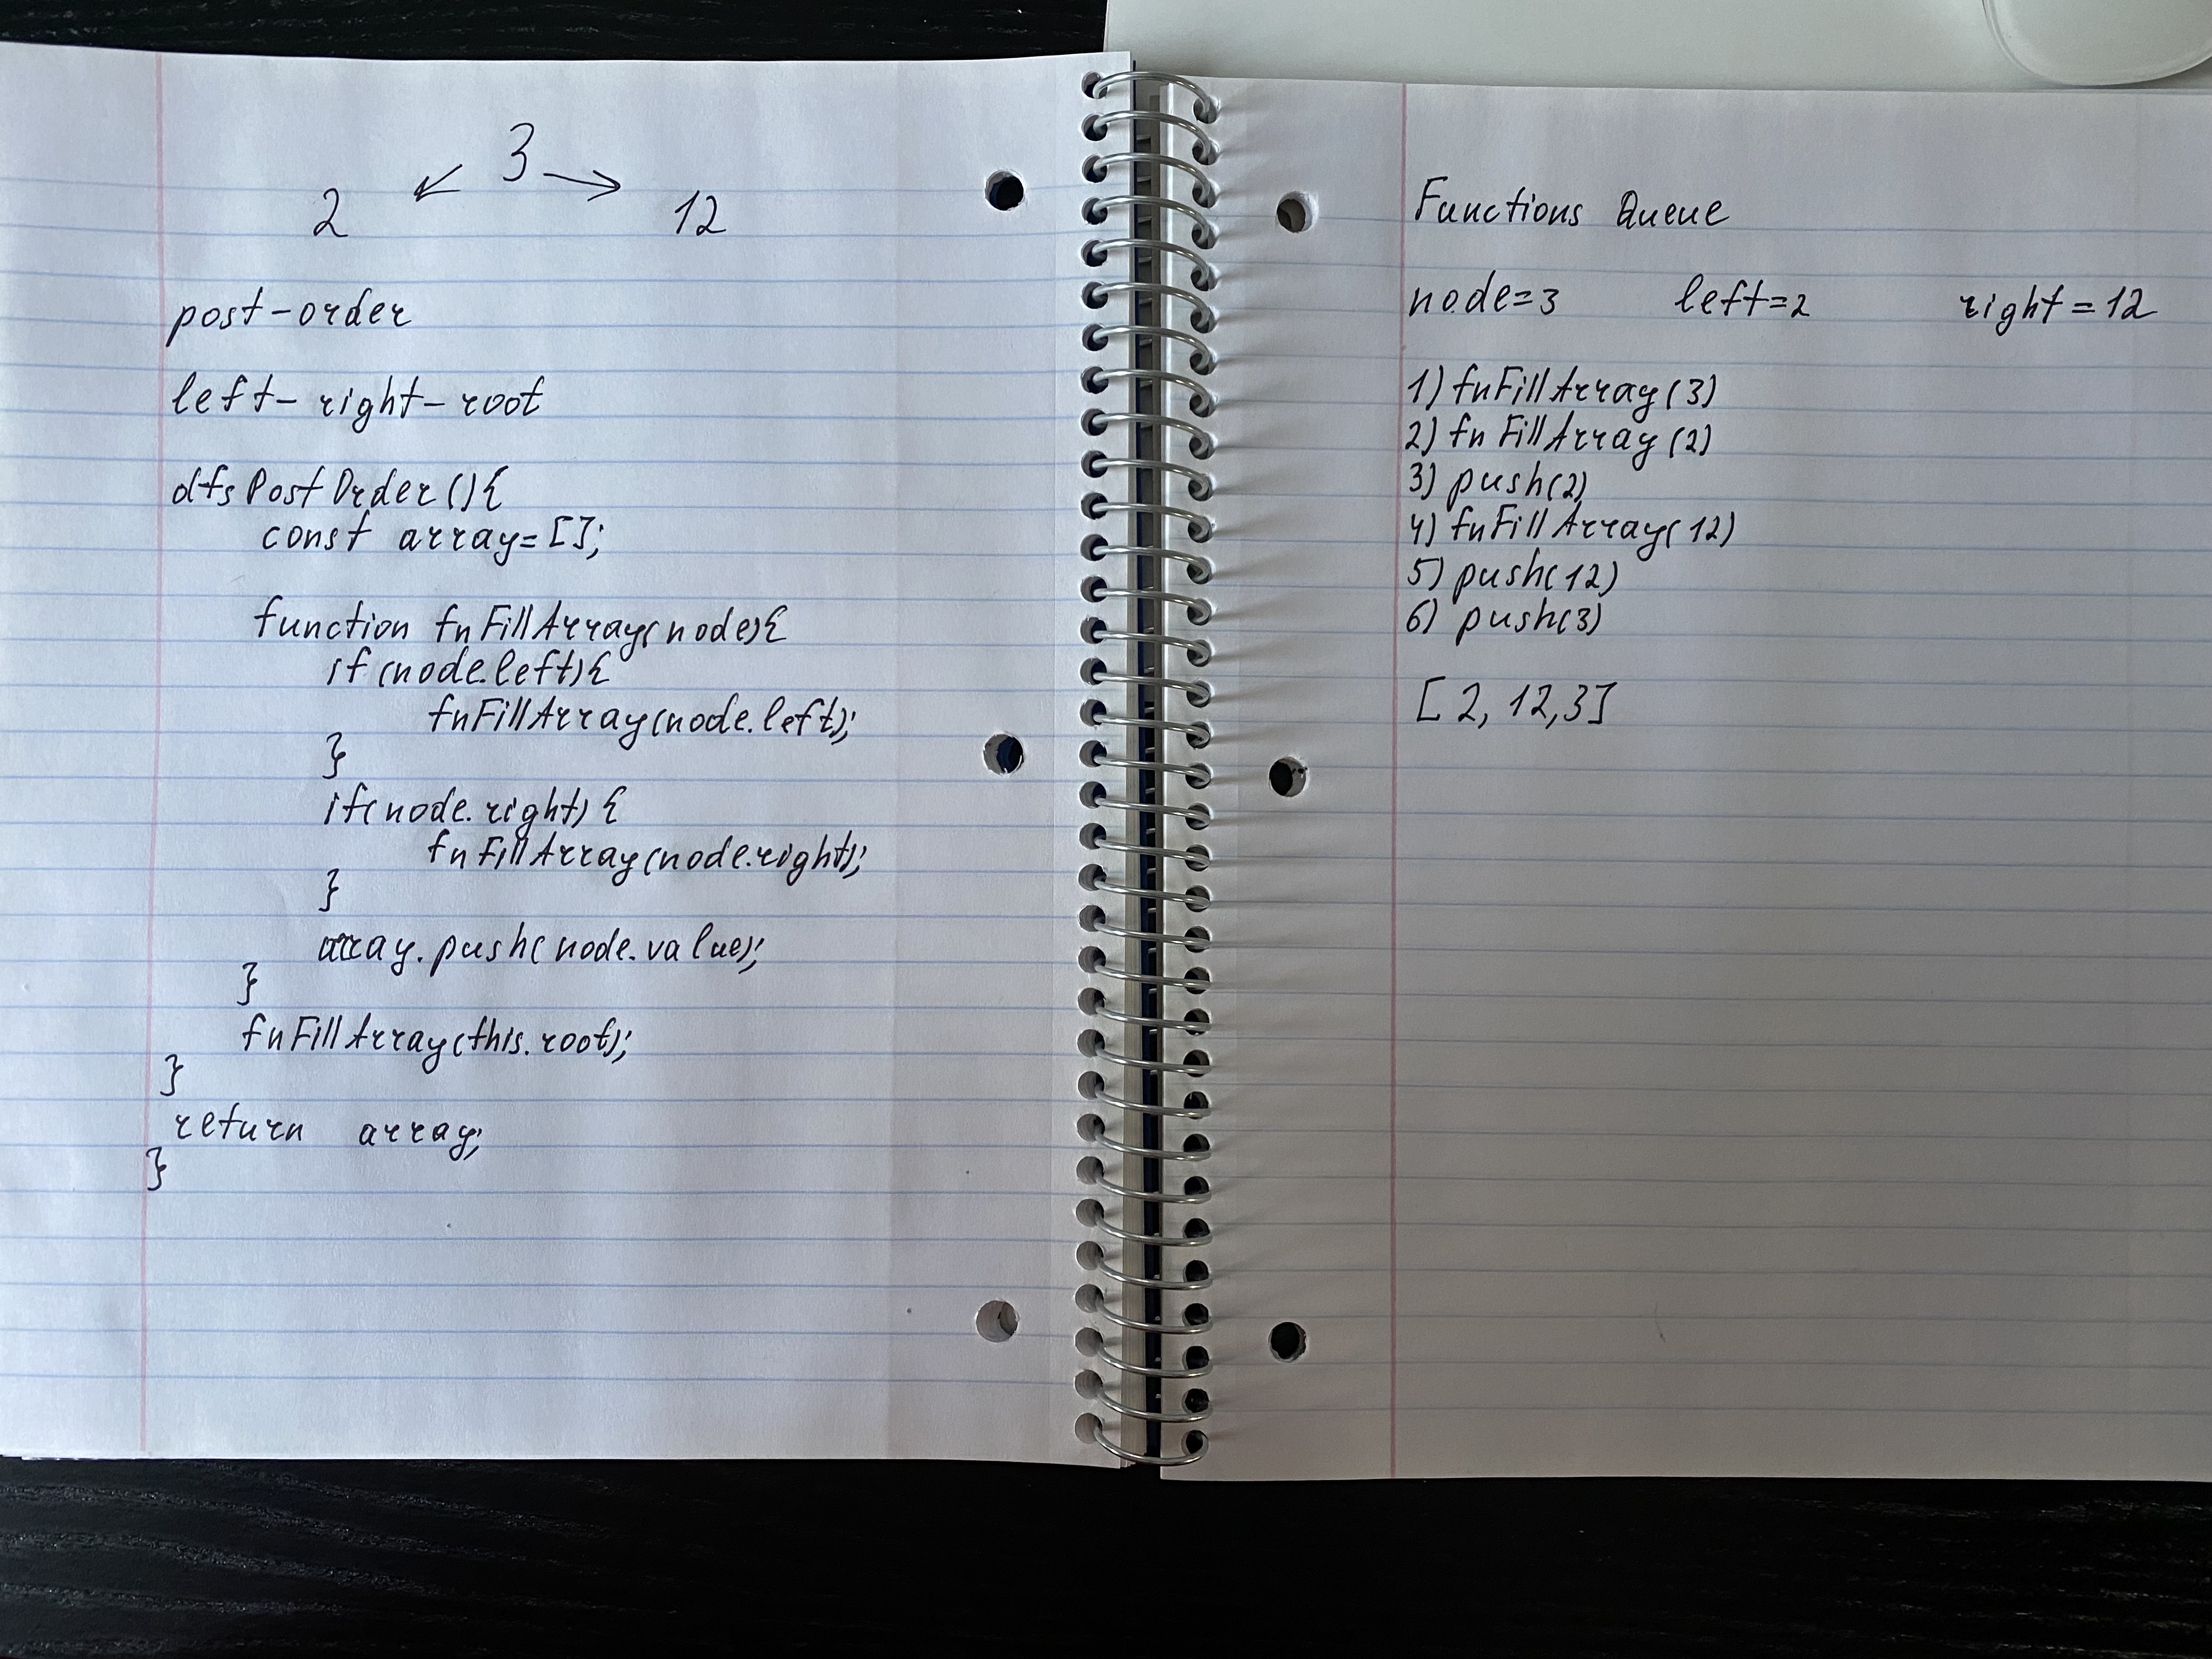 3
2 12
post-order
left-right-root
dfsPostOrder(){
const array=[];
function fnFillArray(node){
if(node.left){
fnFillArray(node.left);
}
if(node.right){
fnFillArray(node.right);
}
array.push(node.value);
}
fnFillArray(this.root);
}
return array;
}
Functions Queue
node=3 left=2 right=12
1) fnFillArray(3)
2) fnFillArray(2)
3) push(2)
4) fnFillArray(12)
5) push(12)
6) push(3)
[2, 12,3]